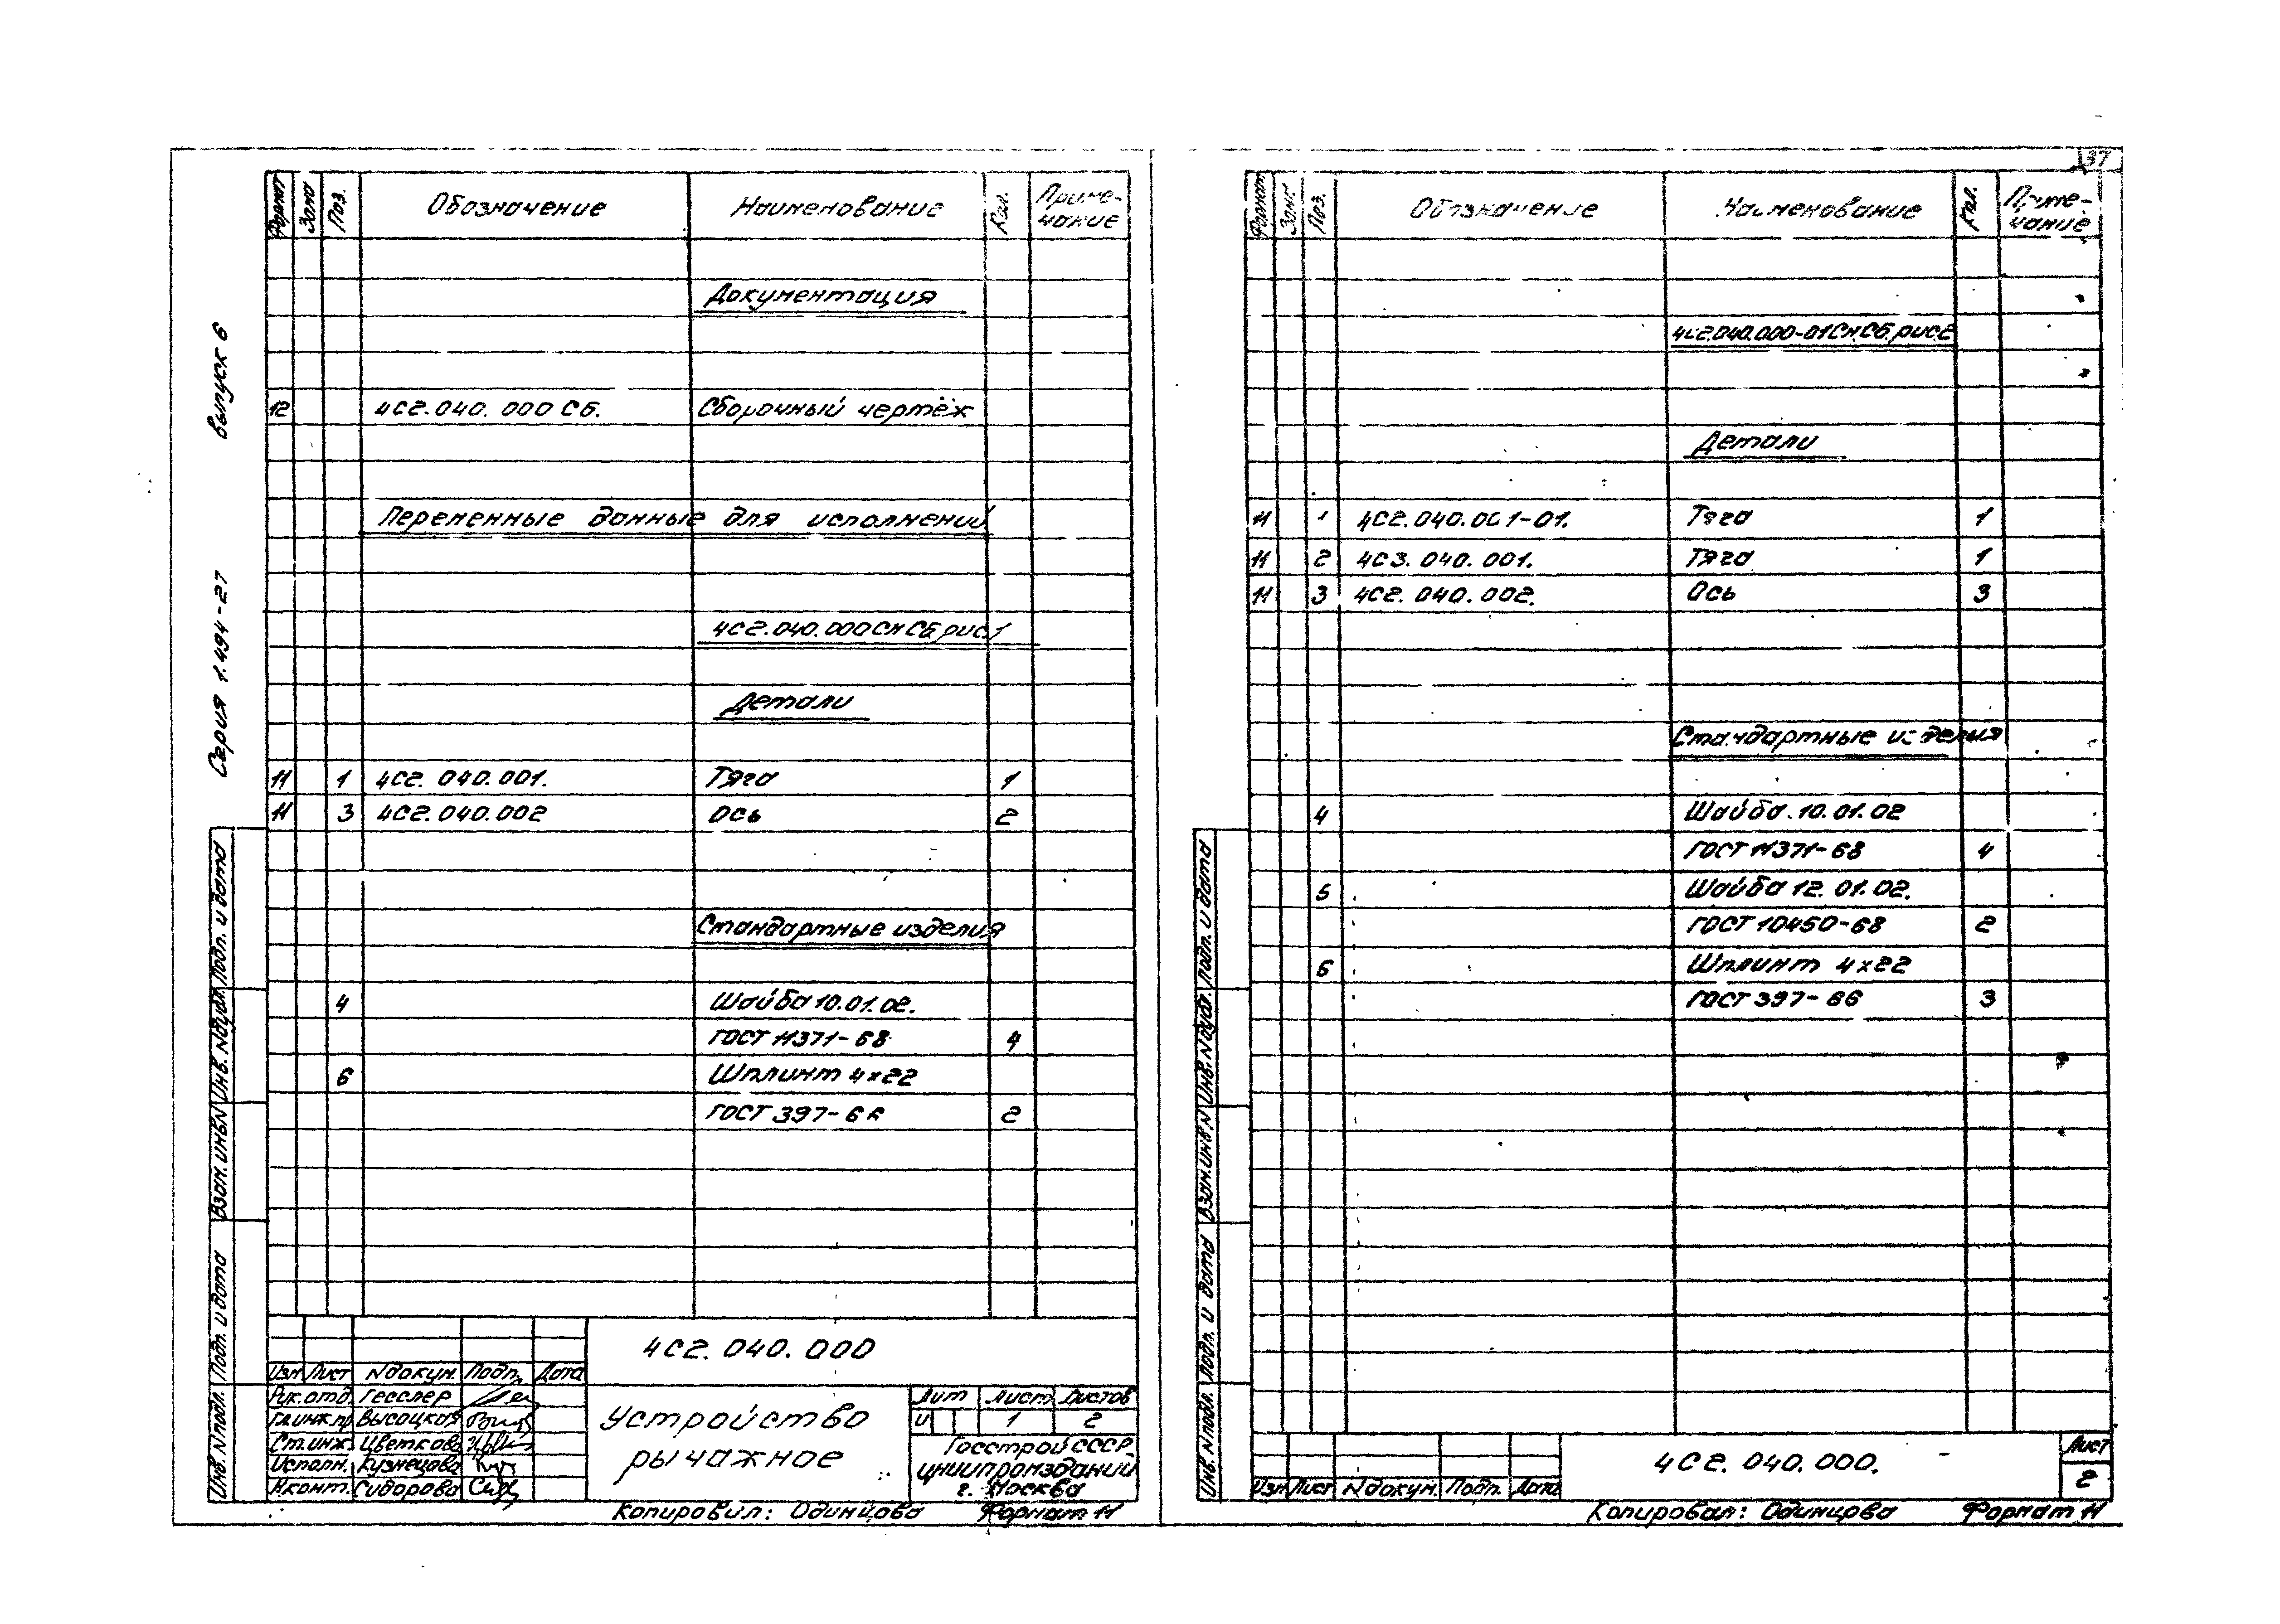 37
Серия 1.494-27 выпуск 6
Формат Зона Поз. Обозначение Наименование Кол. Приме-
чание
Документация
12 4С2.040.000 СБ. Сборочный чертёж
Переменные данные для исполнений
4С2.040.000 См СБ рис.1
Детали
11 1 4С2.040.001. Тяга 1
11 3 4С2.040.002 Ось 2
Стандартные изделия
4 Шайба 10.01.02.
ГОСТ 11371-68 4
6 Шплинт 4х22
ГОСТ 397-66 2
Инв. N подл. Подп. и дата Взам. инв. N Инв. N дубл. Подп. и дата
4С2.040.000
Изм Лист N докум. Подп. Дата
Рук.отд. Гесслер
Гл.инж.пр Высоцкая
Ст.инж. Цветкова
Исполн. Кузнецова
Н.конт. Сидорова
Устройство
рычажное
Лит Лист Листов
И 1 2
Госстрой СССР
ЦНИИпромзданий
г. Москва
Копировал: Одинцова Формат 11
Формат Зона Поз. Обозначение Наименование Кол. Приме-
чание
4С2.040.000-01 См.СБ. рис.2
Детали
11 1 4С2.040.001-01. Тяга 1
11 2 4С3.040.001. Тяга 1
11 3 4С2.040.002. Ось 3
Стандартные изделия
4 Шайба 10.01.02
ГОСТ 11371-68 4
5 Шайба 12.01.02.
ГОСТ 10450-68 2
6 Шплинт 4х22
ГОСТ 397-66 3
Инв. N подл. Подп. и дата Взам. инв. N Инв. N дубл. Подп. и дата
Изм Лист N докум. Подп. Дата
4С2.040.000.
Лист
2
Копировал: Одинцова Формат 11